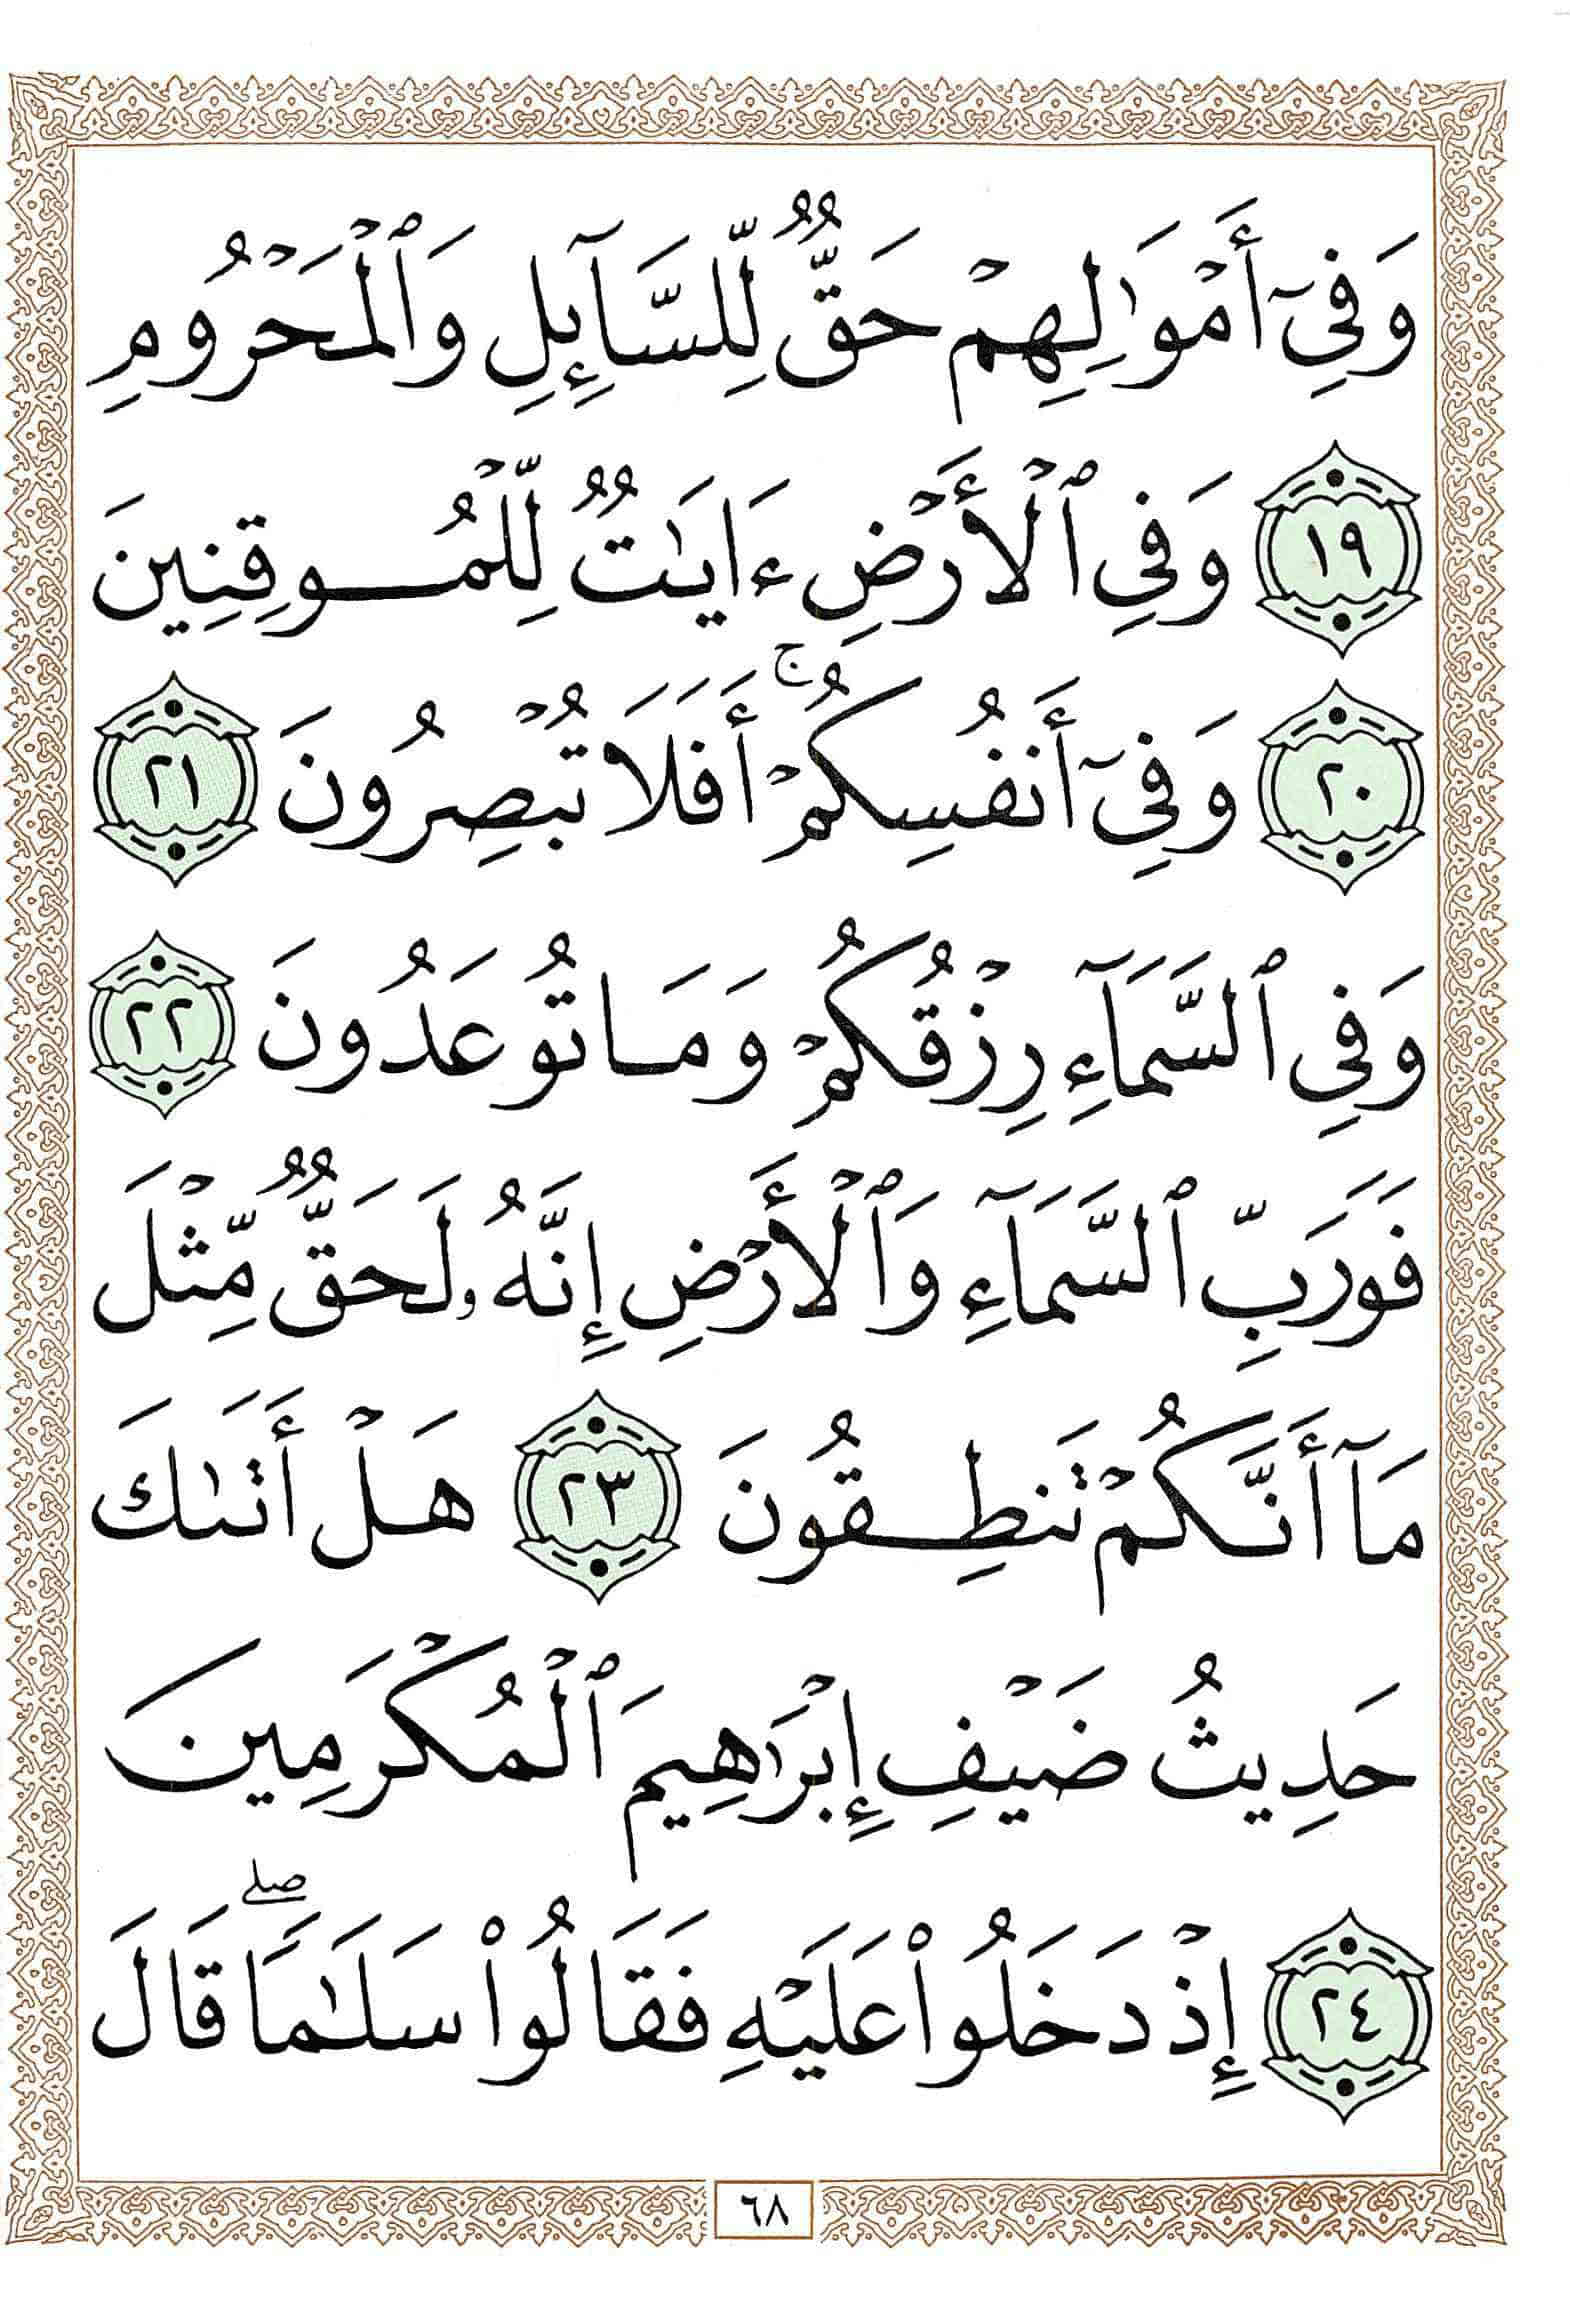 وَفِىٓ أَمۡوَٰلِهِمۡ حَقٌّ لِّلسَّآئِلِ وَٱلۡمَحۡرُومِ
١٩ وَفِى ٱلۡأَرۡضِ ءَايَٰتٌ لِّلۡمُوقِنِينَ
٢٠ وَفِىٓ أَنفُسِكُمۡۚ أَفَلَا تُبۡصِرُونَ ٢١
وَفِى ٱلسَّمَآءِ رِزۡقُكُمۡ وَمَا تُوعَدُونَ ٢٢
فَوَرَبِّ ٱلسَّمَآءِ وَٱلۡأَرۡضِ إِنَّهُۥ لَحَقٌّ مِّثۡلَ
مَآ أَنَّكُمۡ تَنطِقُونَ ٢٣ هَلۡ أَتَىٰكَ
حَدِيثُ ضَيۡفِ إِبۡرَٰهِيمَ ٱلۡمُكۡرَمِينَ
٢٤ إِذۡ دَخَلُواْ عَلَيۡهِ فَقَالُواْ سَلَٰمًاۖ قَالَ
٦٨